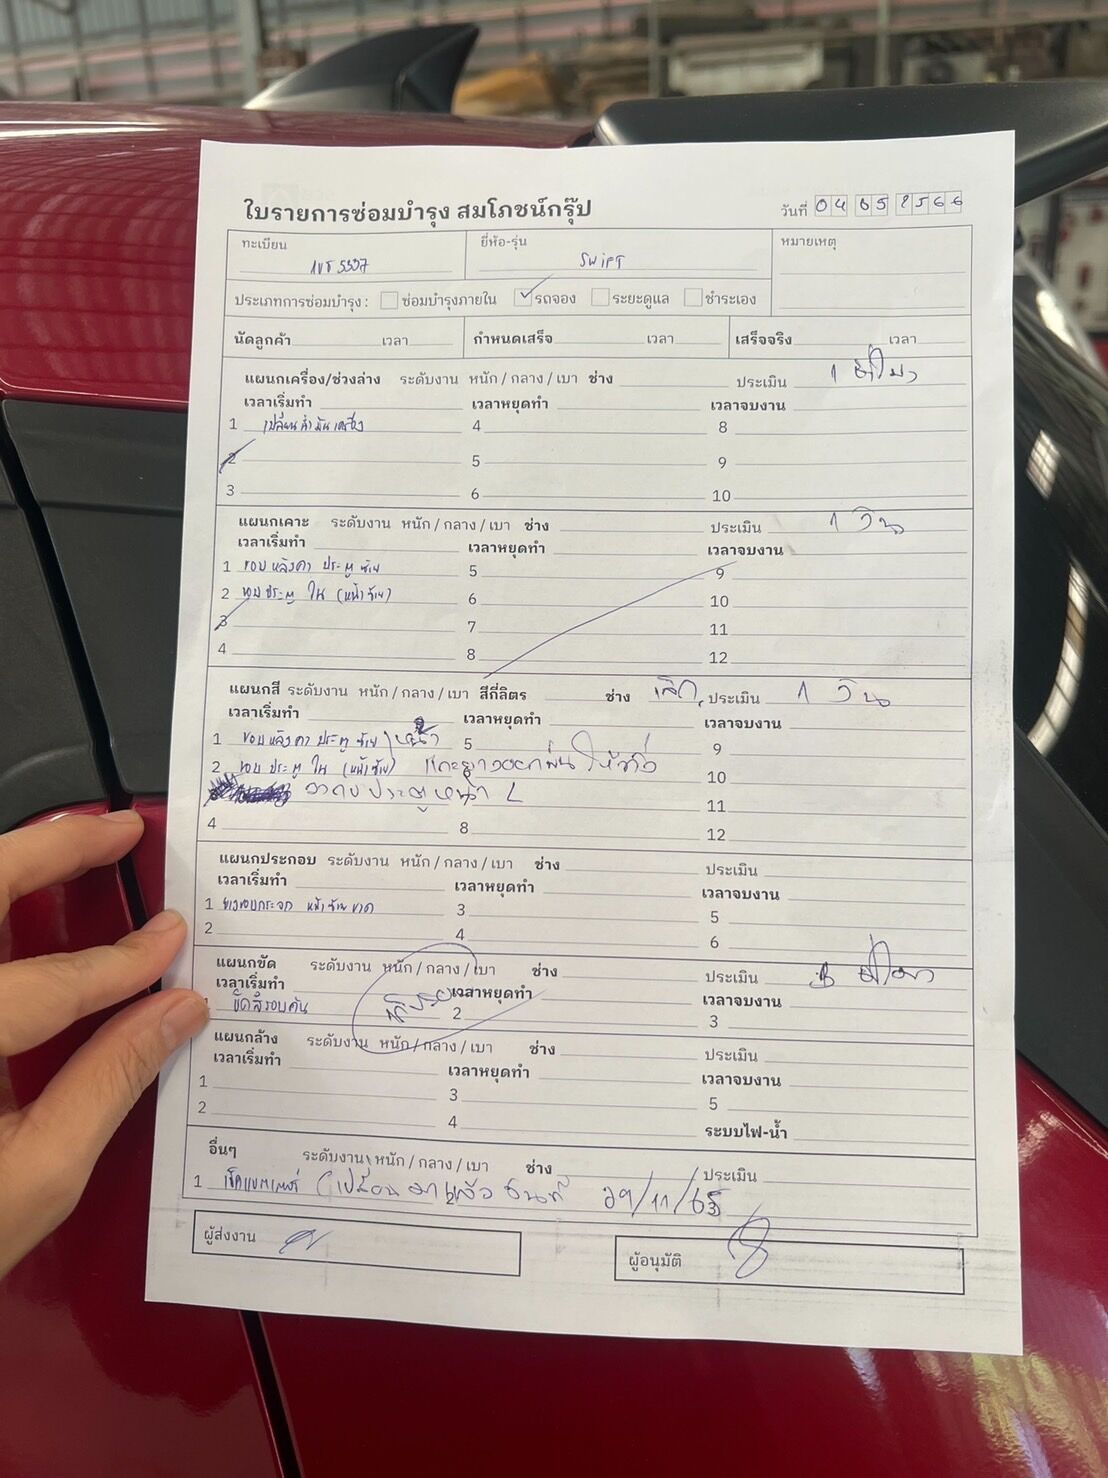 ใบรายการซ่อมบำรุง สมโภชน์กรุ๊ป
วันที่ 04 05 2566
ทะเบียน
5537
ยี่ห้อ-รุ่น
SWIFT
หมายเหตุ
ประเภทการซ่อมบำรุง : ซ่อมบำรุงภายใน รถจอง ระยะดูแล ชำระเอง
นัดลูกค้า เวลา กำหนดเสร็จ เวลา เสร็จจริง เวลา
แผนกเครื่อง/ช่วงล่าง ระดับงาน หนัก / กลาง / เบา ช่าง ประเมิน 1 ชั่วโมง
เวลาเริ่มทำ เวลาหยุดทำ เวลาจบงาน
1 เปลี่ยนน้ำมันเครื่อง 4 8
2 5 9
3 6 10
แผนกเคาะ ระดับงาน หนัก / กลาง / เบา ช่าง ประเมิน 1 วัน
เวลาเริ่มทำ เวลาหยุดทำ เวลาจบงาน
1 ขอบหลังคา ประตู ซ้าย 5 9
2 ขอบประตู ใน (หน้าซ้าย) 6 10
3 7 11
4 8 12
แผนกสี ระดับงาน หนัก / กลาง / เบา สีกี่ลิตร ช่าง ประเมิน 1 วัน
เวลาเริ่มทำ เวลาหยุดทำ เวลาจบงาน
1 ขอบหลังคา ประตู ซ้าย หน้า 5 9
2 ขอบประตู ใน (หน้าซ้าย) แกะยางออกพ่นให้ทั่ว 10
ประตูหน้า L 11
4 8 12
แผนกประกอบ ระดับงาน หนัก / กลาง / เบา ช่าง ประเมิน
เวลาเริ่มทำ เวลาหยุดทำ เวลาจบงาน
1 ยางขอบกระจก หน้าซ้าย ขาด 3 5
2 4 6
แผนกขัด ระดับงาน หนัก / กลาง / เบา ช่าง ประเมิน 3 ชั่วโมง
เวลาเริ่มทำ เวลาหยุดทำ เวลาจบงาน
1 ขัดสีรอบคัน 2 3
แผนกล้าง ระดับงาน หนัก / กลาง / เบา ช่าง ประเมิน
เวลาเริ่มทำ เวลาหยุดทำ เวลาจบงาน
1 3 5
2 4 ระบบไฟ-น้ำ
อื่นๆ ระดับงาน หนัก / กลาง / เบา ช่าง ประเมิน
1 เช็คแบตเตอรี่ (เปลี่ยนมาแล้ว วันที่ 29/11/65
ผู้ส่งงาน
ผู้อนุมัติ